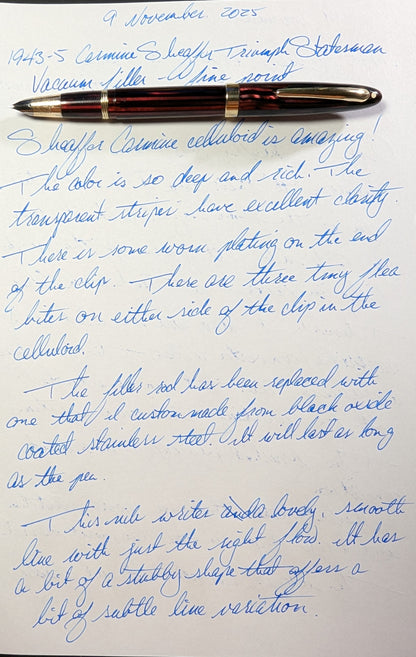 9 November 2025
1943-5 Carmine Sheaffer Triumph Statesman
Vacuum filler - A fine point
Sheaffer Carmine celluloid is amazing!
The color is so deep and rich. The
transparent stripes have excellent clarity.
There is some worn plating on the end
of the clip. There are three tiny flea
bites on either side of the clip in the
celluloid.
The filler rod has been replaced with
one that I custom made from black oxide
coated stainless steel. It will last as long
as the pen.
This nib writes a lovely, smooth
line with just the right flow. It has
a bit of a stubby shape that offers a
bit of subtle line variation.